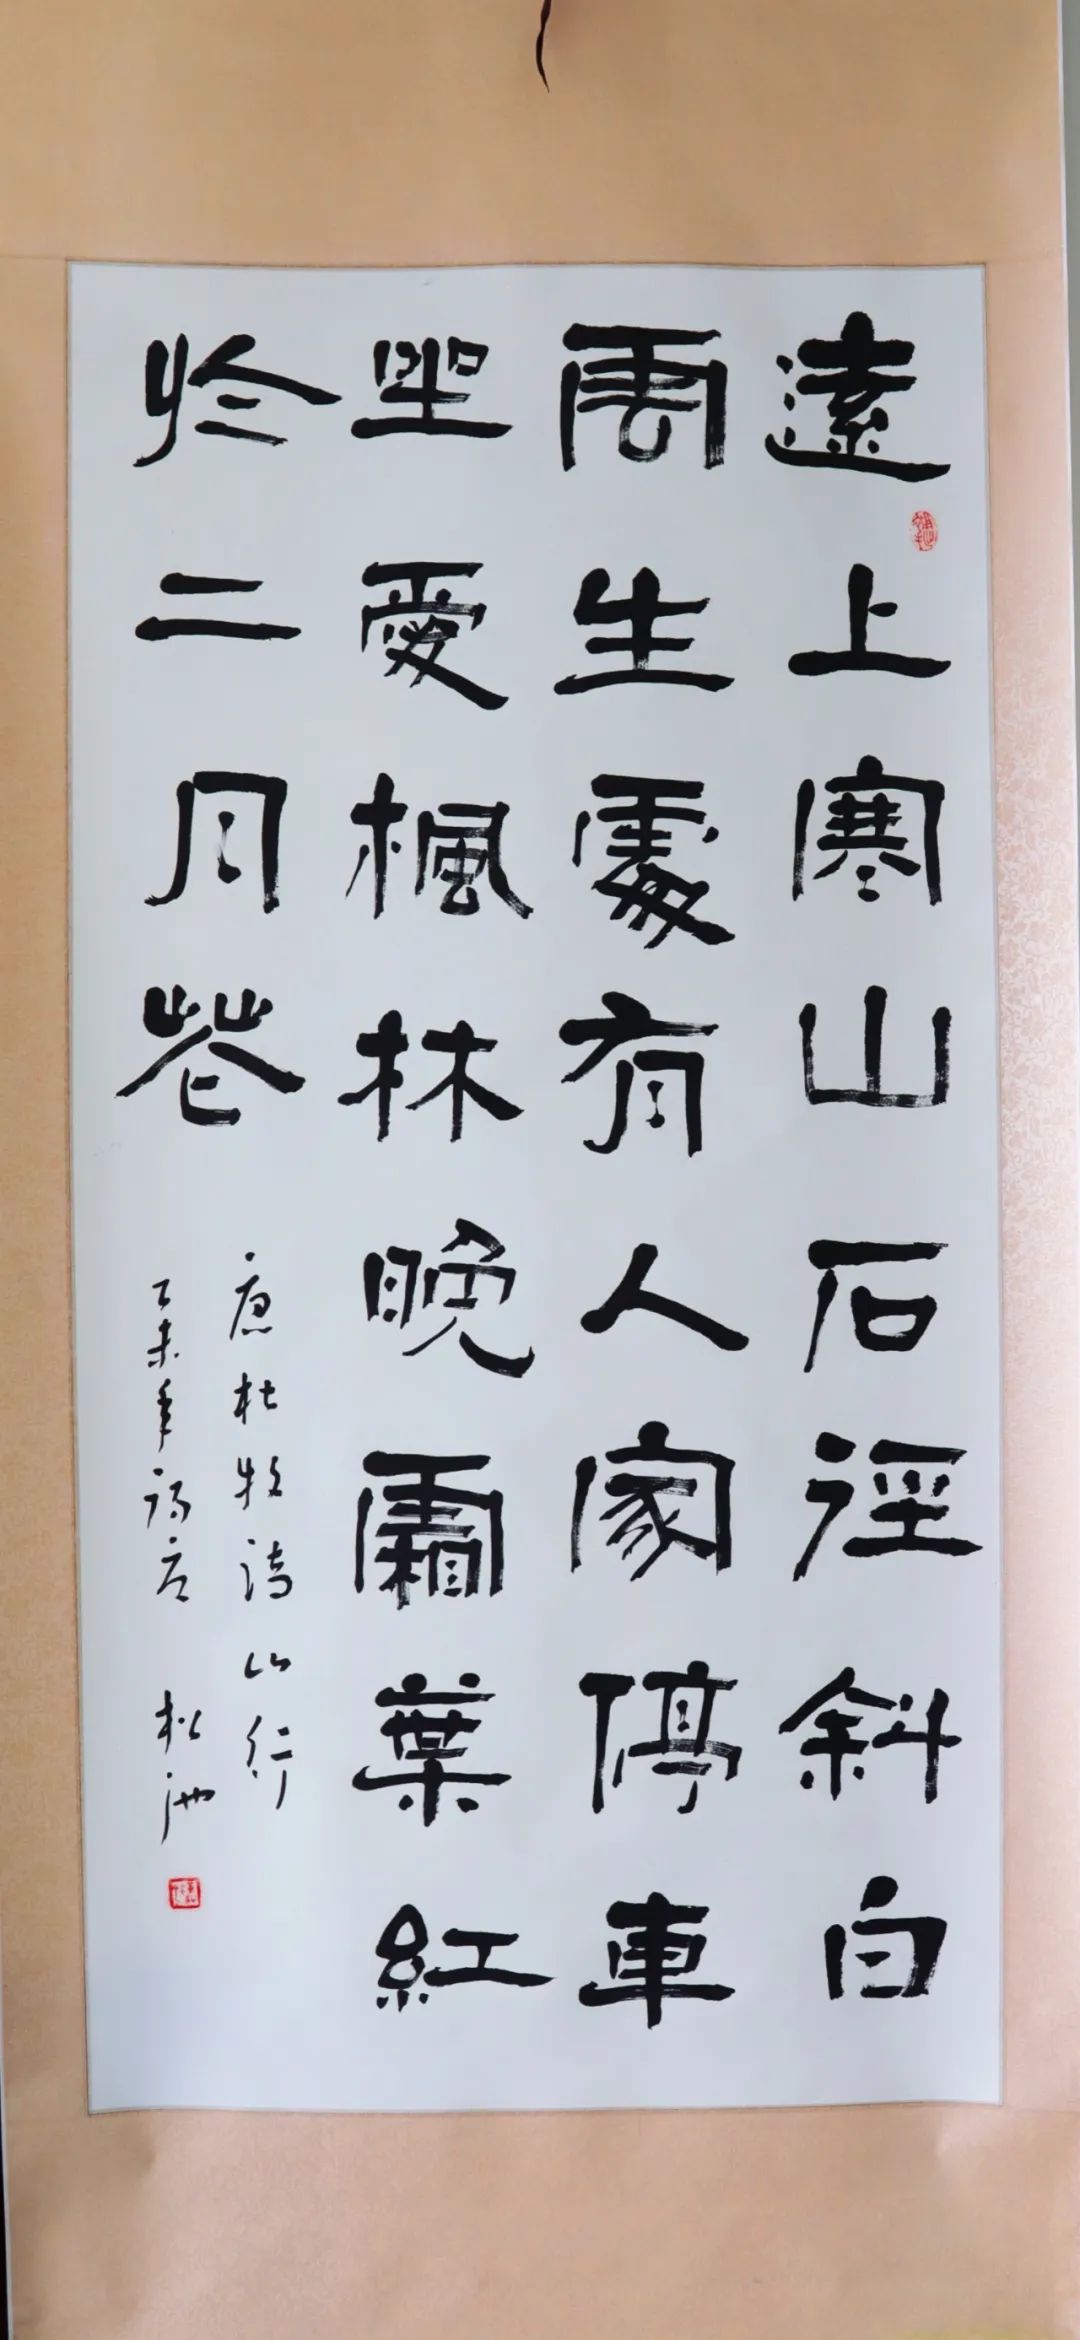 遠上寒山石徑斜白
雲生處有人家停車
坐愛楓林晚霜葉紅
於二月花
唐杜牧詩山行
乙未年